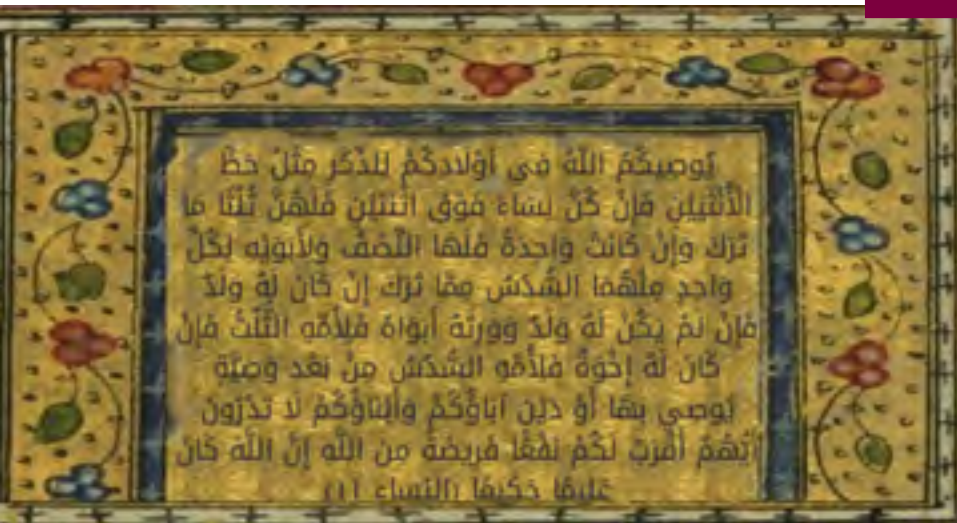 يُوصِيكُمُ اللَّهُ فِي أَوْلَادِكُمْ لِلذَّكَرِ مِثْلُ حَظِّ
الْأُنْثَيَيْنِ فَإِنْ كُنَّ نِسَاءً فَوْقَ اثْنَتَيْنِ فَلَهُنَّ ثُلُثَا مَا
تَرَكَ وَإِنْ كَانَتْ وَاحِدَةً فَلَهَا النِّصْفُ وَلِأَبَوَيْهِ لِكُلِّ
وَاحِدٍ مِنْهُمَا السُّدُسُ مِمَّا تَرَكَ إِنْ كَانَ لَهُ وَلَدٌ
فَإِنْ لَمْ يَكُنْ لَهُ وَلَدٌ وَوَرِثَهُ أَبَوَاهُ فَلِأُمِّهِ الثُّلُثُ فَإِنْ
كَانَ لَهُ إِخْوَةٌ فَلِأُمِّهِ السُّدُسُ مِنْ بَعْدِ وَصِيَّةٍ
يُوصِي بِهَا أَوْ دَيْنٍ آبَاؤُكُمْ وَأَبْنَاؤُكُمْ لَا تَدْرُونَ
أَيُّهُمْ أَقْرَبُ لَكُمْ نَفْعًا فَرِيضَةً مِنَ اللَّهِ إِنَّ اللَّهَ كَانَ
عَلِيمًا حَكِيمًا (النساء 11)